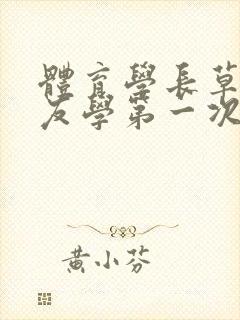 體育學長草
友學第一次
黃小芬